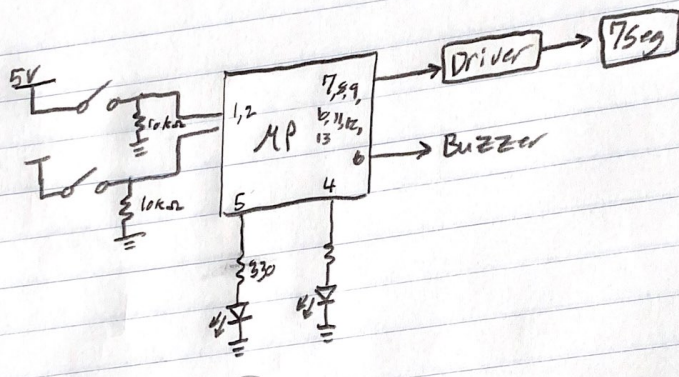 5V
10kΩ
10kΩ
1,2
μP
7,8,9,
10,11,12,
13
6
5
4
330
Driver
7Seg
Buzzer